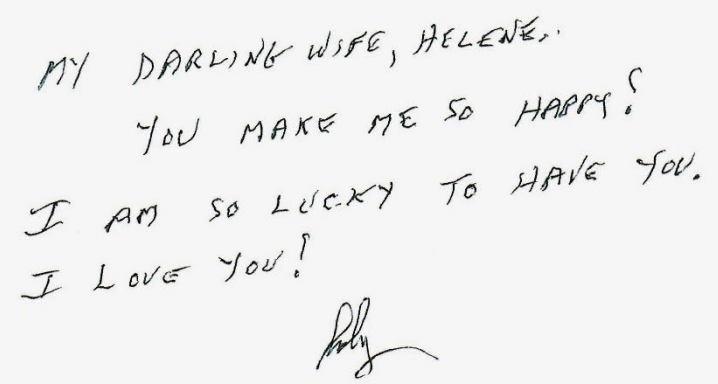 MY DARLING WIFE, HELENE..
YOU MAKE ME SO HAPPY!
I AM SO LUCKY TO HAVE YOU.
I LOVE YOU!